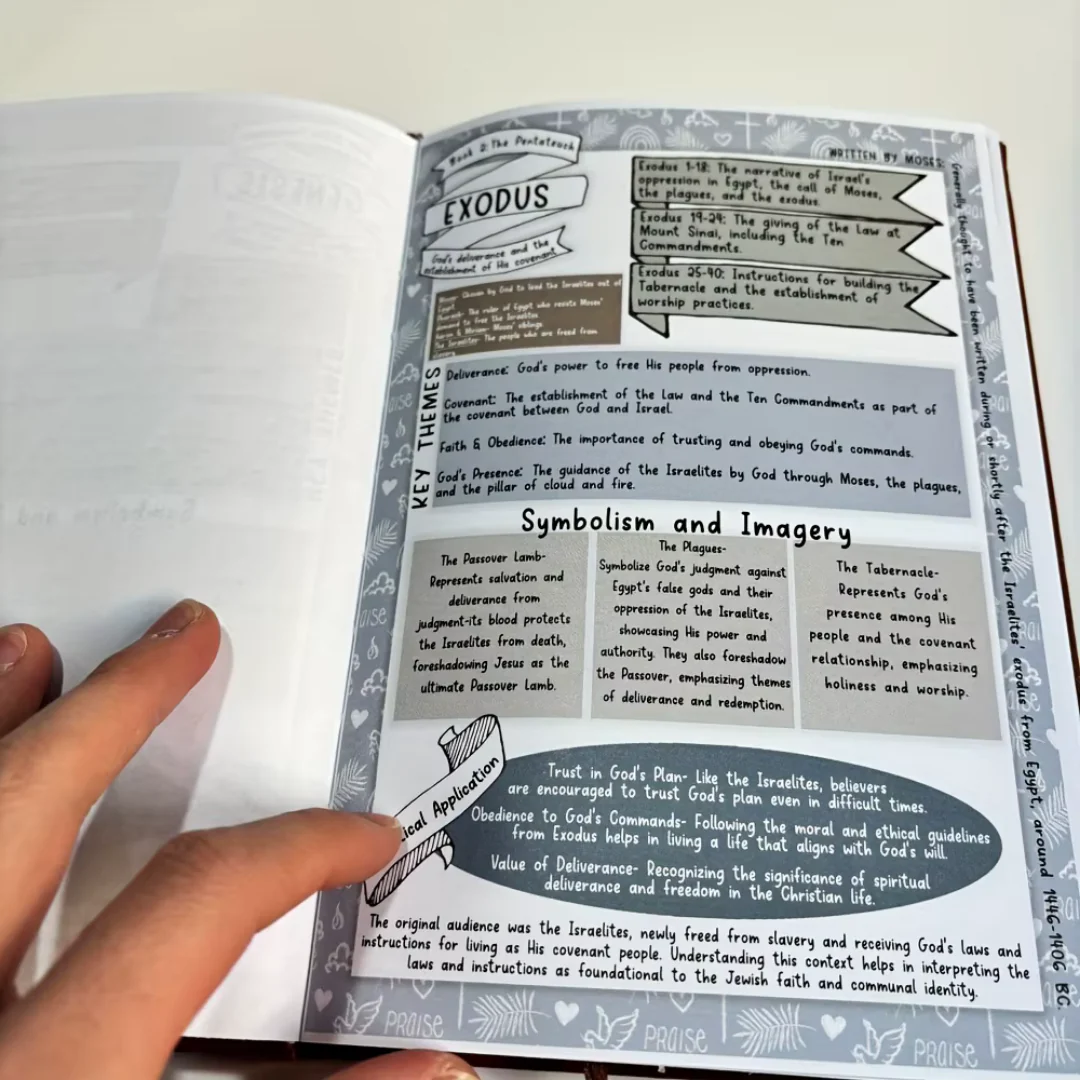 Book 2: The Pentateuch
EXODUS
God's deliverance and the
establishment of His covenant
WRITTEN BY MOSES:
Generally thought to have been written during or shortly after the Israelites' exodus from Egypt, around 1446-1406 BC.
Exodus 1-18: The narrative of Israel's
oppression in Egypt, the call of Moses,
the plagues, and the exodus.
Exodus 19-24: The giving of the Law at
Mount Sinai, including the Ten
Commandments.
Exodus 25-40: Instructions for building the
Tabernacle and the establishment of
worship practices.
Moses: Chosen by God to lead the Israelites out of
Egypt
Pharaoh: The ruler of Egypt who resists Moses'
demand to free the Israelites
Aaron & Miriam: Moses' siblings
The Israelites: The people who are freed from
slavery
KEY THEMES
Deliverance: God's power to free His people from oppression.
Covenant: The establishment of the Law and the Ten Commandments as part of
the covenant between God and Israel.
Faith & Obedience: The importance of trusting and obeying God's commands.
God's Presence: The guidance of the Israelites by God through Moses, the plagues,
and the pillar of cloud and fire.
Symbolism and Imagery
The Passover Lamb-
Represents salvation and
deliverance from
judgment-its blood protects
the Israelites from death,
foreshadowing Jesus as the
ultimate Passover Lamb.
The Plagues-
Symbolize God's judgment against
Egypt's false gods and their
oppression of the Israelites,
showcasing His power and
authority. They also foreshadow
the Passover, emphasizing themes
of deliverance and redemption.
The Tabernacle-
Represents God's
presence among His
people and the covenant
relationship, emphasizing
holiness and worship.
ical Application
Trust in God's Plan- Like the Israelites, believers
are encouraged to trust God's plan even in difficult times.
Obedience to God's Commands- Following the moral and ethical guidelines
from Exodus helps in living a life that aligns with God's will.
Value of Deliverance- Recognizing the significance of spiritual
deliverance and freedom in the Christian life.
The original audience was the Israelites, newly freed from slavery and receiving God's laws and
instructions for living as His covenant people. Understanding this context helps in interpreting the
laws and instructions as foundational to the Jewish faith and communal identity.
PRAISE
PRAISE
PRAISE